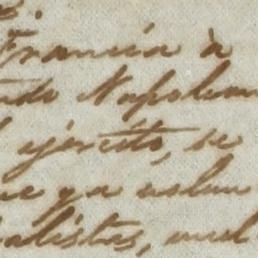 Francia à
ndo Napoleon
ejército, se
ue ya estan
alistas, mul